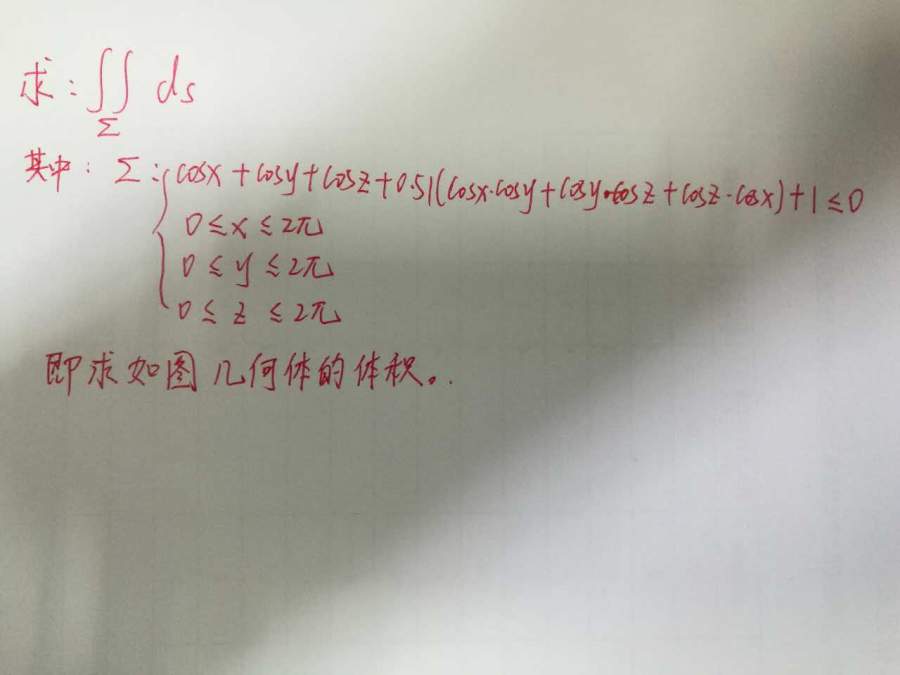 求: ∬_Σ ds
其中: Σ: { cosx + cosy + cosz + 0.51(cosx·cosy + cosy·cosz + cosz·cosx) + 1 ≤ 0
0 ≤ x ≤ 2π
0 ≤ y ≤ 2π
0 ≤ z ≤ 2π
即求如图几何体的体积。